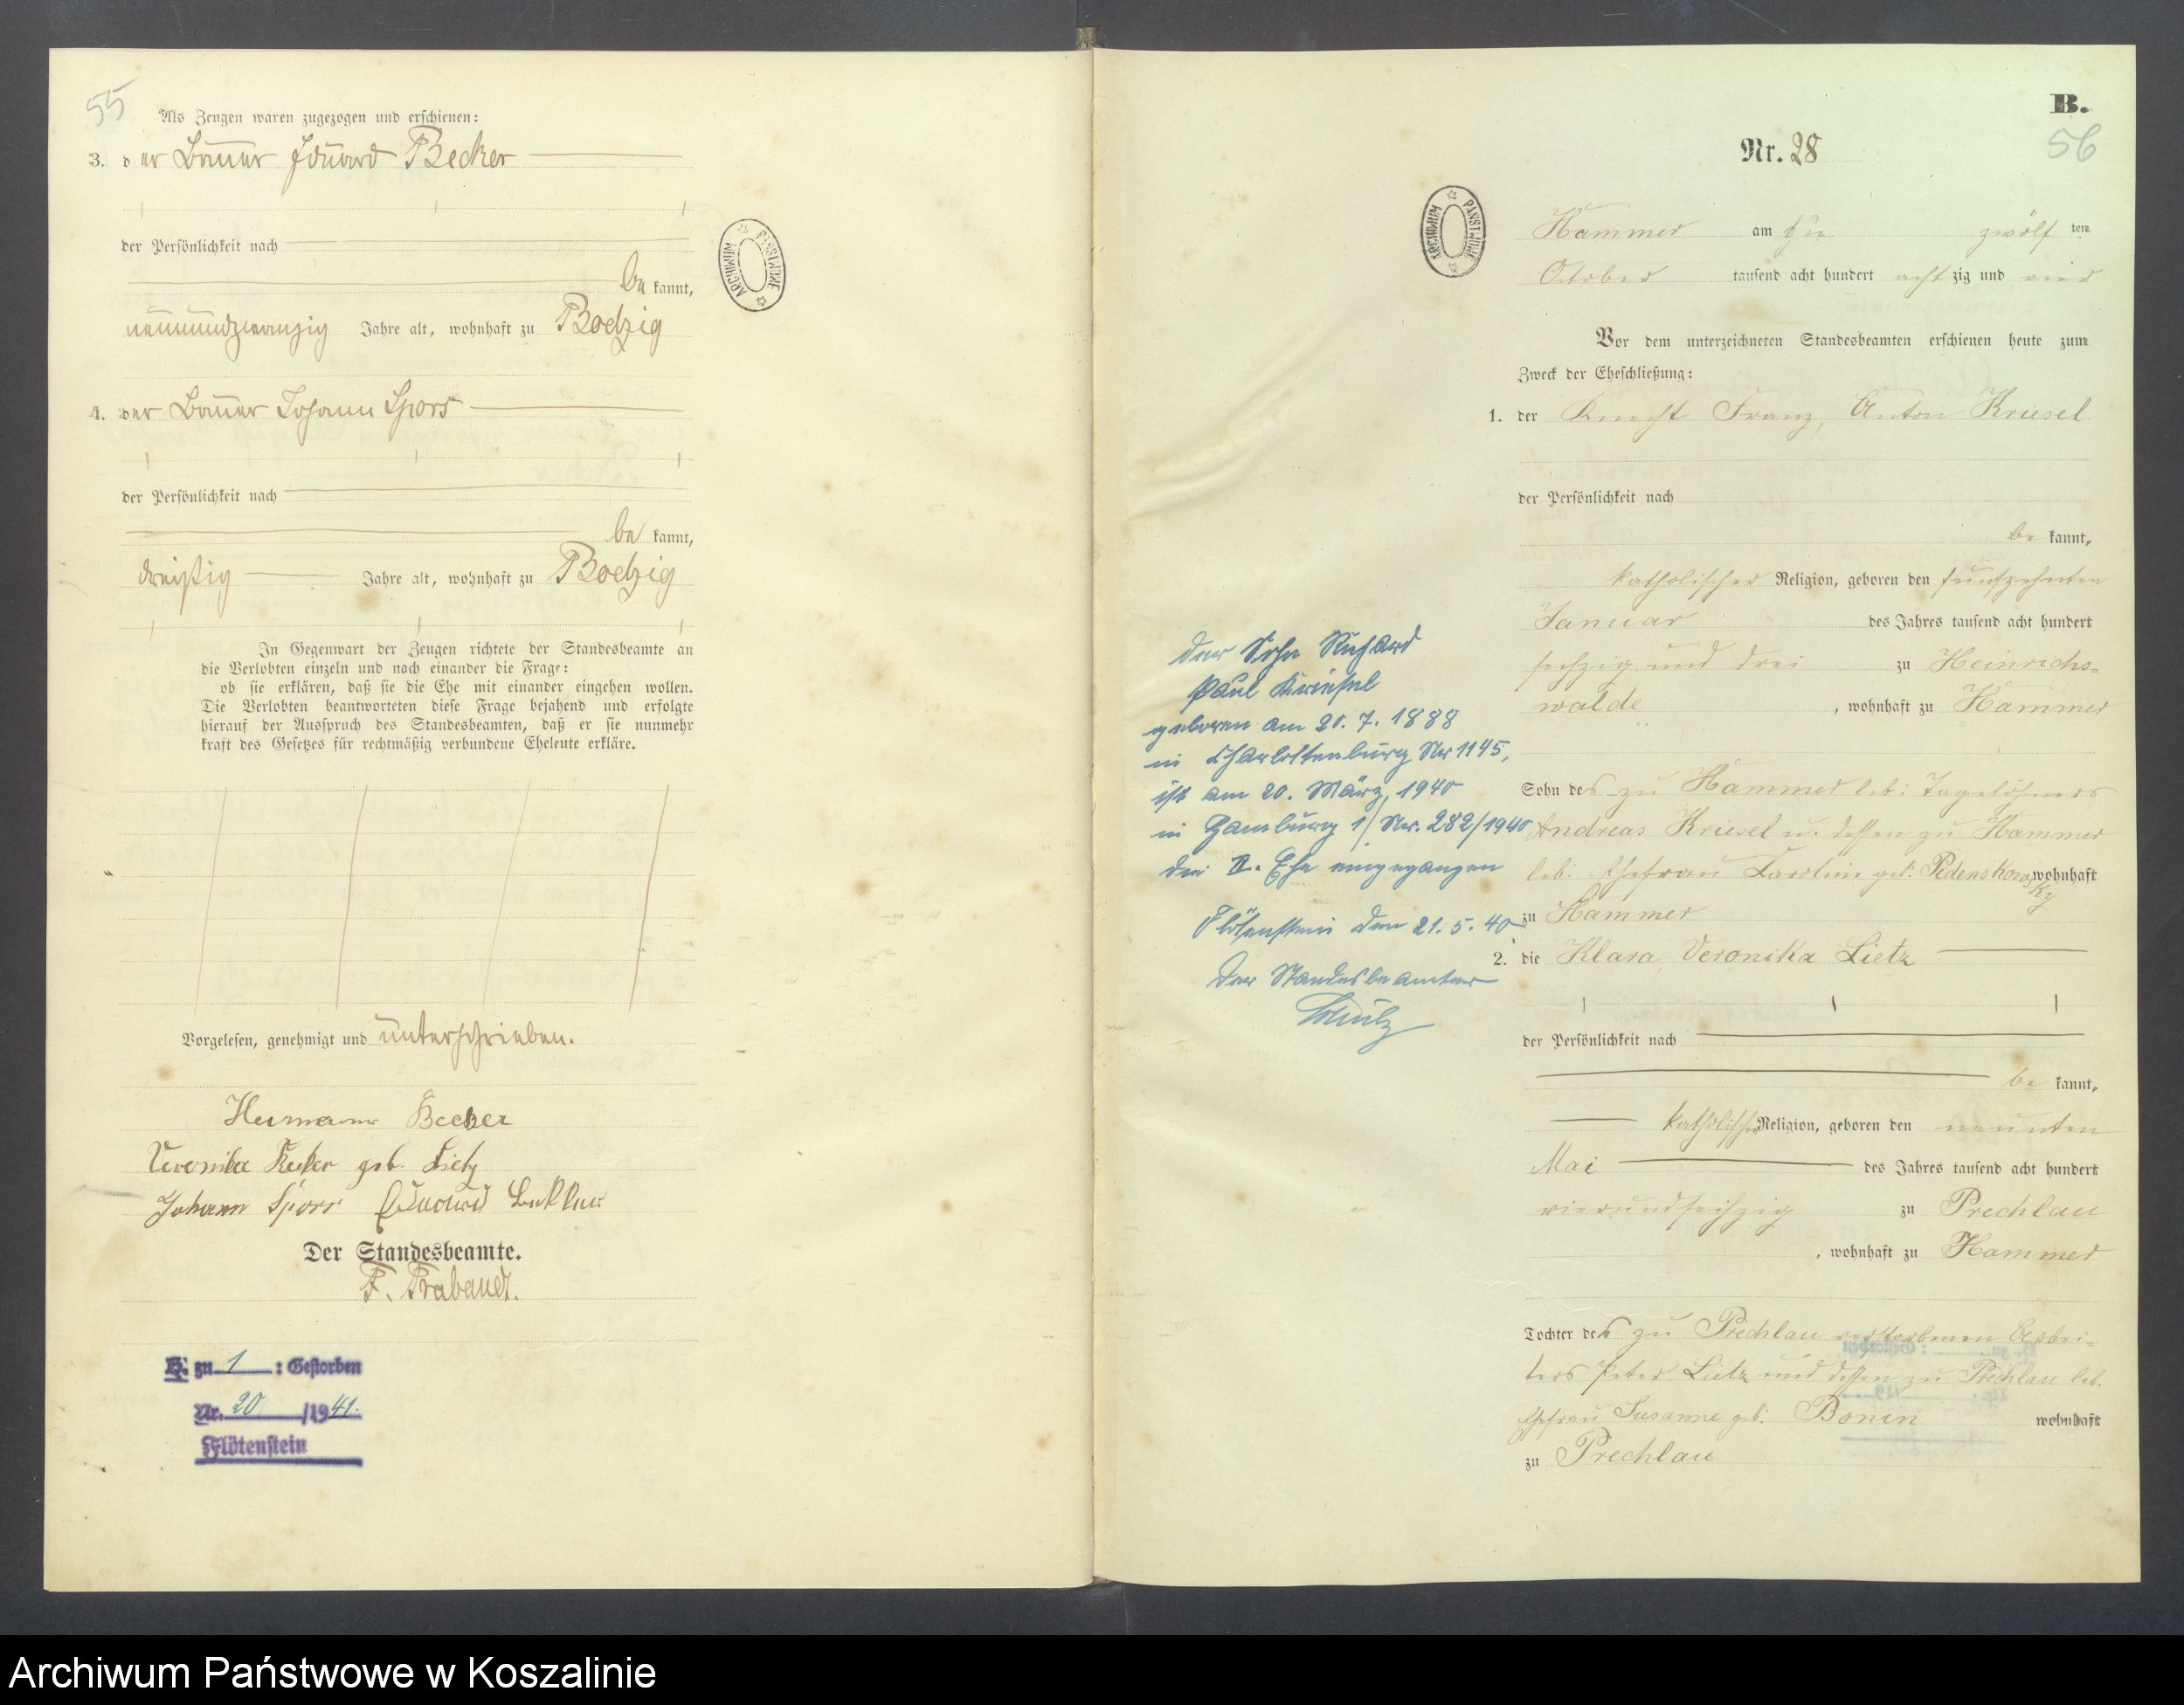 55
Als Zeugen waren zugezogen und erschienen:
3. der Bauer Eduard Becker
der Persönlichkeit nach
be kannt,
neunundzwanzig Jahre alt, wohnhaft zu Boelzig
4. der Bauer Johann Spors
der Persönlichkeit nach
be kannt,
dreißig Jahre alt, wohnhaft zu Boelzig
In Gegenwart der Zeugen richtete der Standesbeamte an
die Verlobten einzeln und nach einander die Frage:
ob sie erklären, daß sie die Ehe mit einander eingehen wollen.
Die Verlobten beantworteten diese Frage bejahend und erfolgte
hierauf der Ausspruch des Standesbeamten, daß er sie nunmehr
kraft des Gesetzes für rechtmäßig verbundene Eheleute erkläre.
Vorgelesen, genehmigt und unterschrieben.
Hermann Becker
Veronika Becker geb. Lietz
Johann Spors Eduard Becker
Der Standesbeamte.
F. Prabandt.
H. zu 1 : Gestorben
Nr. 20 /1941.
Flötenstein
ARCHIWUM PAŃSTWOWE
B.
56
Nr. 28
ARCHIWUM PAŃSTWOWE
Hammer am zwölf ten
October tausend acht hundert achtzig und vier
Vor dem unterzeichneten Standesbeamten erschienen heute zum
Zweck der Eheschließung:
1. der Knecht Franz, Anton Kriesel
der Persönlichkeit nach
be kannt,
katholischer Religion, geboren den fünfzehnten
Januar des Jahres tausend acht hundert
sechzig und drei zu Heinrichs-
walde, wohnhaft zu Hammer
Sohn des zu Hammer leb: Tagelöhners
Andreas Kriesel u. dessen zu Hammer
leb: Ehefrau Karoline geb: wohnhaft
zu Hammer
2. die Klara Veronika Lietz
der Persönlichkeit nach
be kannt,
katholischer Religion, geboren den neunten
Mai des Jahres tausend acht hundert
vierundsechzig zu Prechlau
, wohnhaft zu Hammer
Tochter des zu Prechlau verstorbenen Arbei-
ters Peter Lietz und dessen zu Prechlau leb.
Ehefrau Susanne geb: Bonin wohnhaft
zu Prechlau
Der Sohn Richard
Paul Kriesel
geboren am 20. 7. 1888
in Charlottenburg Nr 1145,
ist am 20. März 1940
in Hamburg 1/ Nr. 282/1940
die II. Ehe eingegangen
Flötenstein den 21. 5. 40
Der Standesbeamte
Schulz
Archiwum Państwowe w Koszalinie